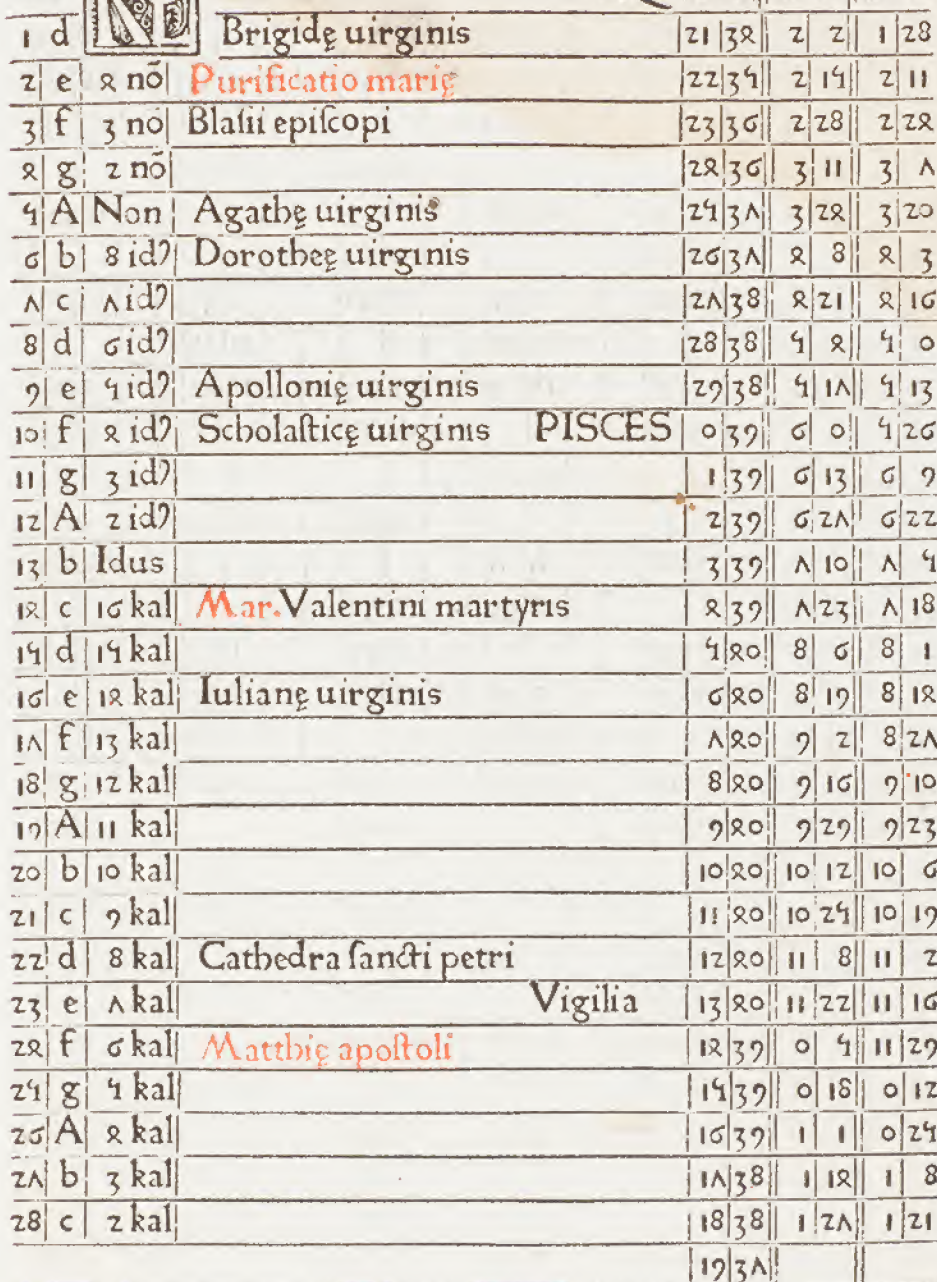 1 d N Brigidę uirginis 21 34 2 2 1 28
2 e 4 nō Purificatio marię 22 35 2 15 2 11
3 f 3 nō Blaſii epiſcopi 23 36 2 28 2 24
4 g 2 nō 24 36 3 11 3 7
5 A Non Agathę uirginis 25 37 3 24 3 20
6 b 8 idꝰ Dorotheę uirginis 26 37 4 8 4 3
7 c 7 idꝰ 27 38 4 21 4 16
8 d 6 idꝰ 28 38 5 4 5 0
9 e 5 idꝰ Apollonię uirginis 29 38 5 17 5 13
10 f 4 idꝰ Scholaſticę uirginis PISCES 0 39 6 0 5 26
11 g 3 idꝰ 1 39 6 13 6 9
12 A 2 idꝰ 2 39 6 27 6 22
13 b Idus 3 39 7 10 7 5
14 c 16 kal Mar. Valentini martyris 4 39 7 23 7 18
15 d 15 kal 5 40 8 6 8 1
16 e 14 kal Iulianę uirginis 6 40 8 19 8 14
17 f 13 kal 7 40 9 2 8 27
18 g 12 kal 8 40 9 16 9 10
19 A 11 kal 9 40 9 29 9 23
20 b 10 kal 10 40 10 12 10 6
21 c 9 kal 11 40 10 25 10 19
22 d 8 kal Cathedra ſancti petri 12 40 11 8 11 2
23 e 7 kal Vigilia 13 40 11 22 11 16
24 f 6 kal Matthię apoſtoli 14 39 0 5 11 29
25 g 5 kal 15 39 0 18 0 12
26 A 4 kal 16 39 1 1 0 25
27 b 3 kal 17 38 1 14 1 8
28 c 2 kal 18 38 1 27 1 21
19 37